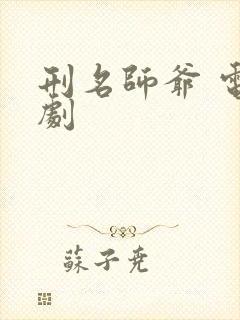 刑名師爺 電
劇
蘇子尭